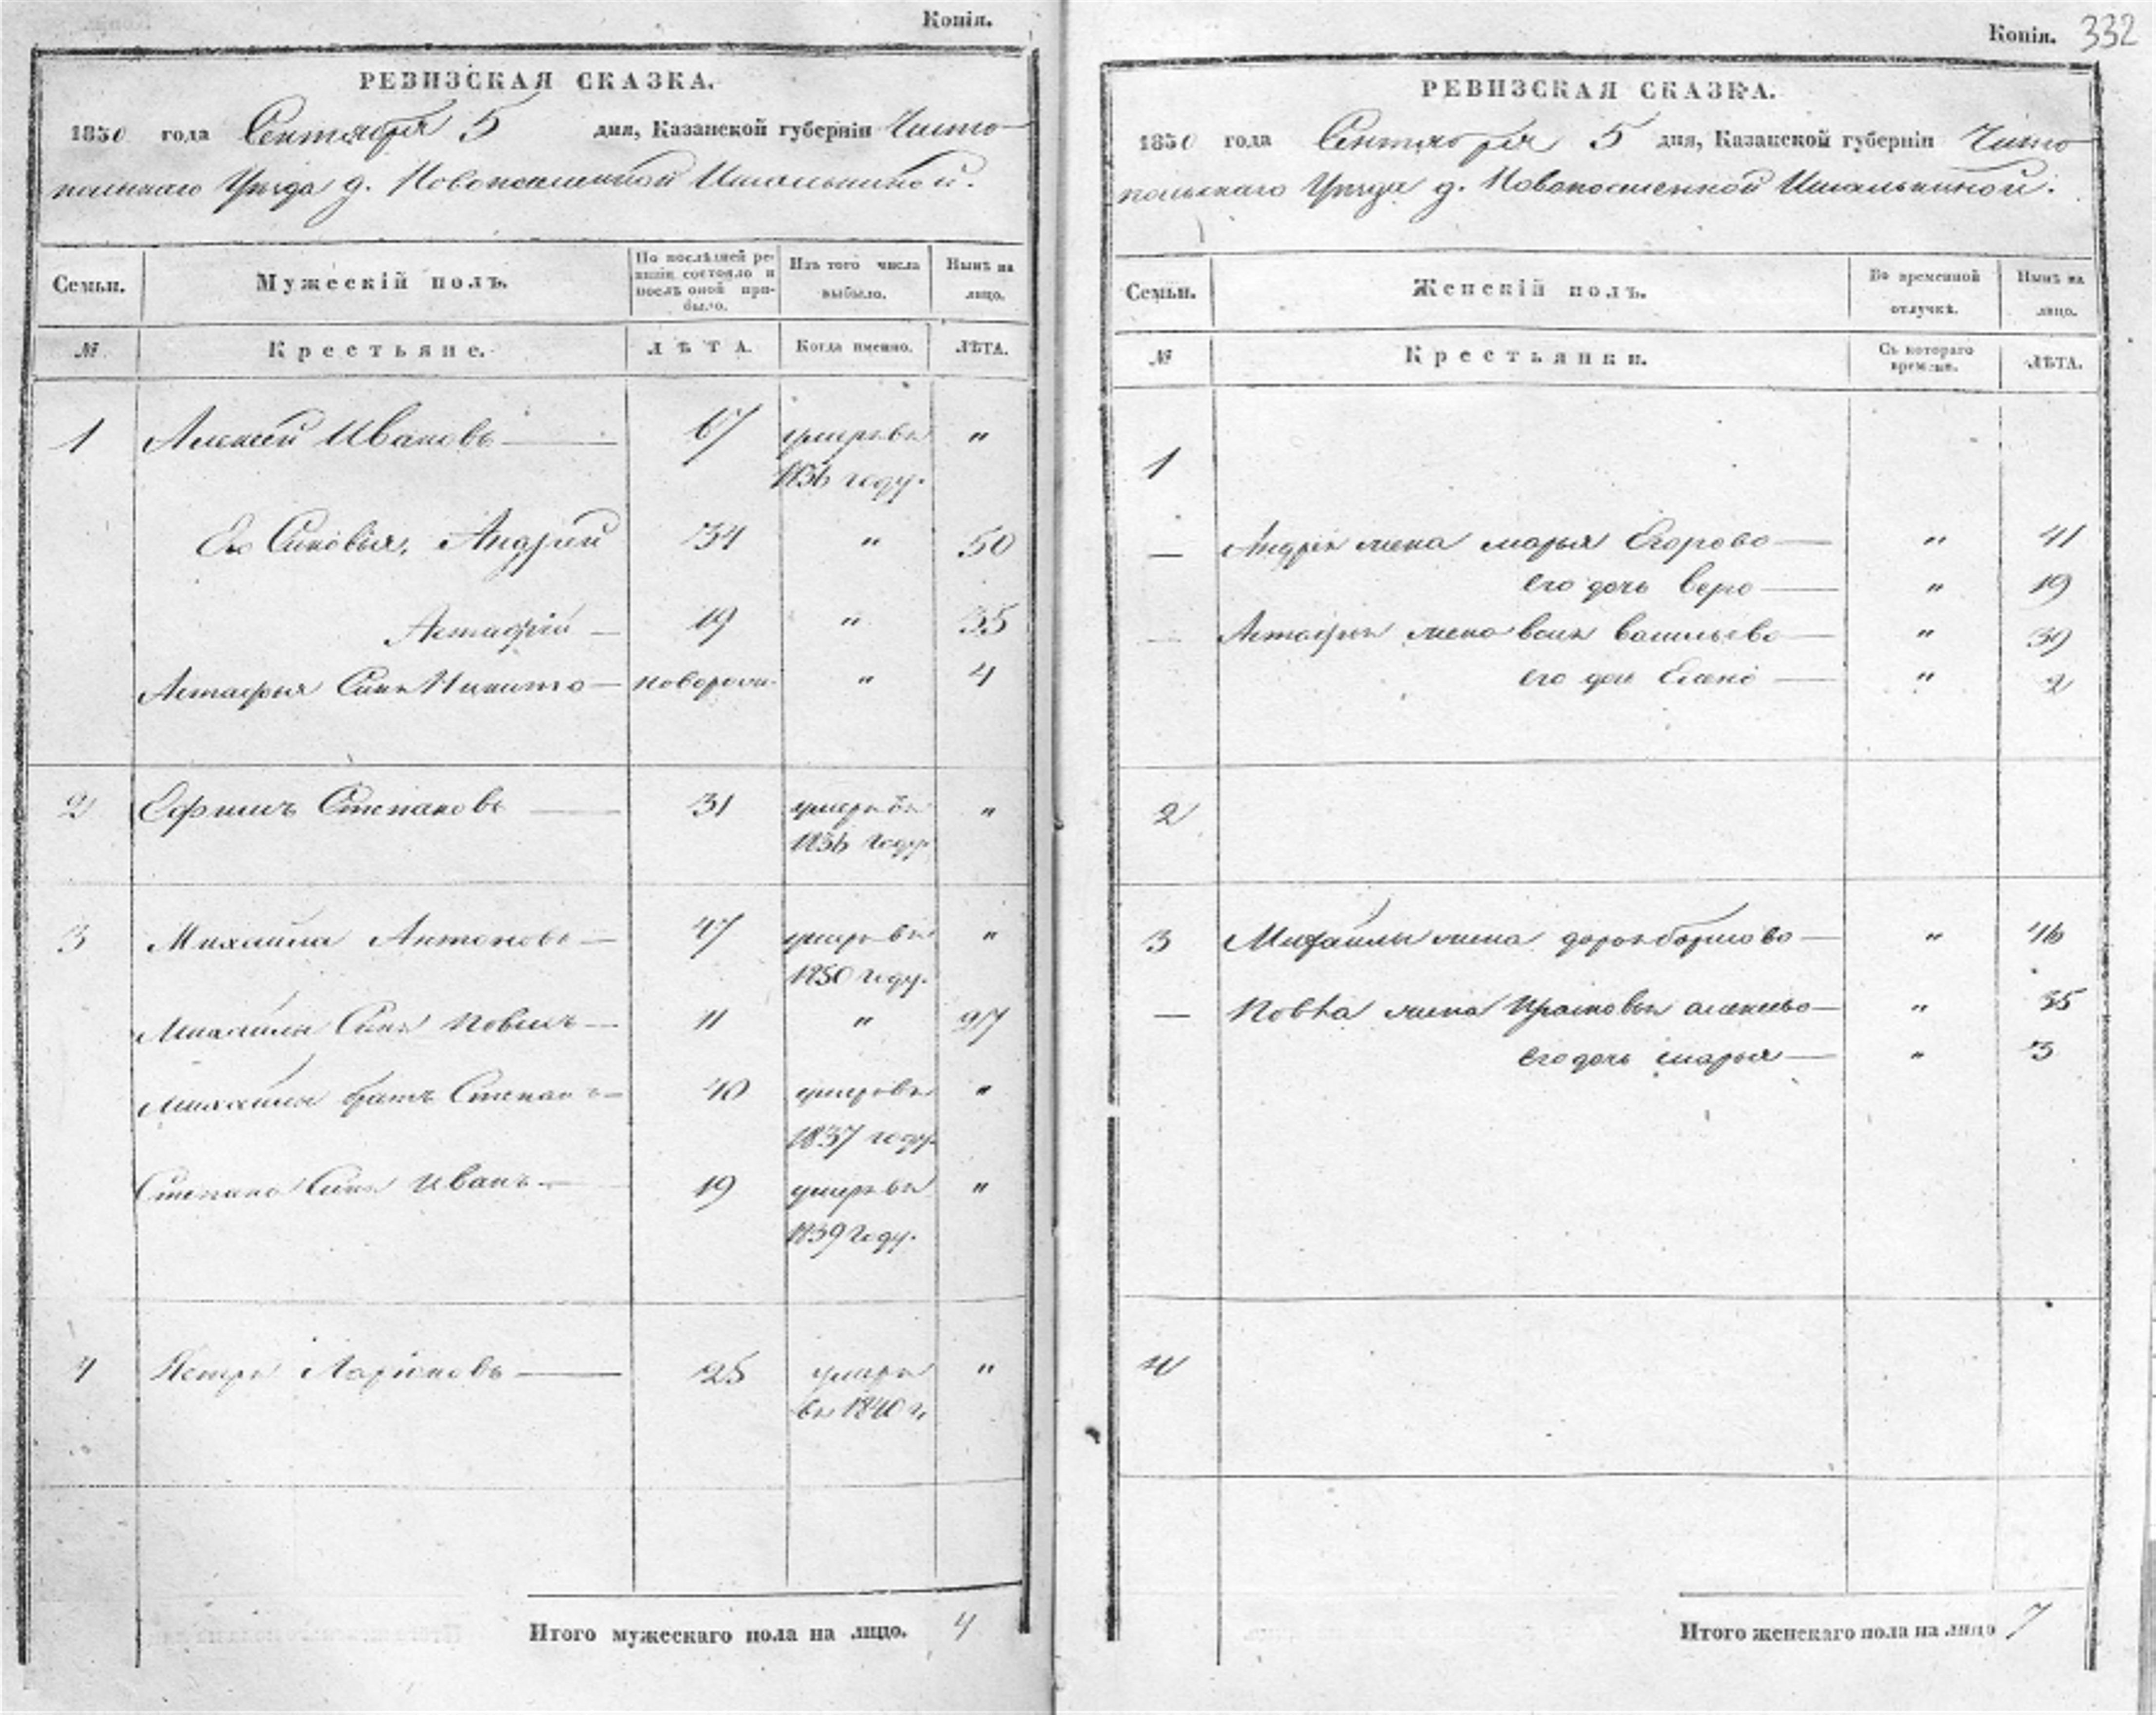 Копія.
РЕВИЗСКАЯ СКАЗКА.
1850 года Сентября 5 дня, Казанской губерніи Чисто
польскаго Уѣзда д. Новопоселенной Ишалькиной.
Семьи. Мужескій полъ. По послѣдней ревизіи состояло и послѣ оной прибыло. Изъ того числа выбыло. Нынѣ на лицо.
№ Крестьяне. ЛѢТА. Когда именно. ЛѢТА.
1 Алексей Ивановъ 67 умеръ въ "
1836 году.
Его Сыновья, Андрей 34 " 50
Астафій 19 " 35
Астафья Сынъ Никита новорожд. " 4
2 Ефимъ Степановъ 31 умеръ въ "
1836 году
3 Михайла Антоновъ 47 умеръ въ "
1850 году.
Михайлы Сынъ 11 " 27
Михайлы братъ Степанъ 40 умеръ въ "
1837 году
Степана Сынъ Иванъ 19 умеръ въ "
1839 году.
4 Петръ Ларіоновъ 25 умеръ "
въ 1840 г.
Итого мужескаго пола на лицо. 4
Копія. 332
РЕВИЗСКАЯ СКАЗКА.
1850 года Сентября 5 дня, Казанской губерніи Чисто
польскаго Уѣзда д. Новопоселенной Ишалькиной.
Семьи. Женскій полъ. Во временной отлучкѣ. Нынѣ на лицо.
№ Крестьянки. Съ котораго времени. ЛѢТА.
1
— Андрея жена марья Егорова " 41
его дочь вера " 19
Астафья жена васильева " 39
его доч Елена " 2
2
3 Михайлы жена борисова " 46
— жена " 35
его дочь марья " 3
4
Итого женскаго пола на лицо 7